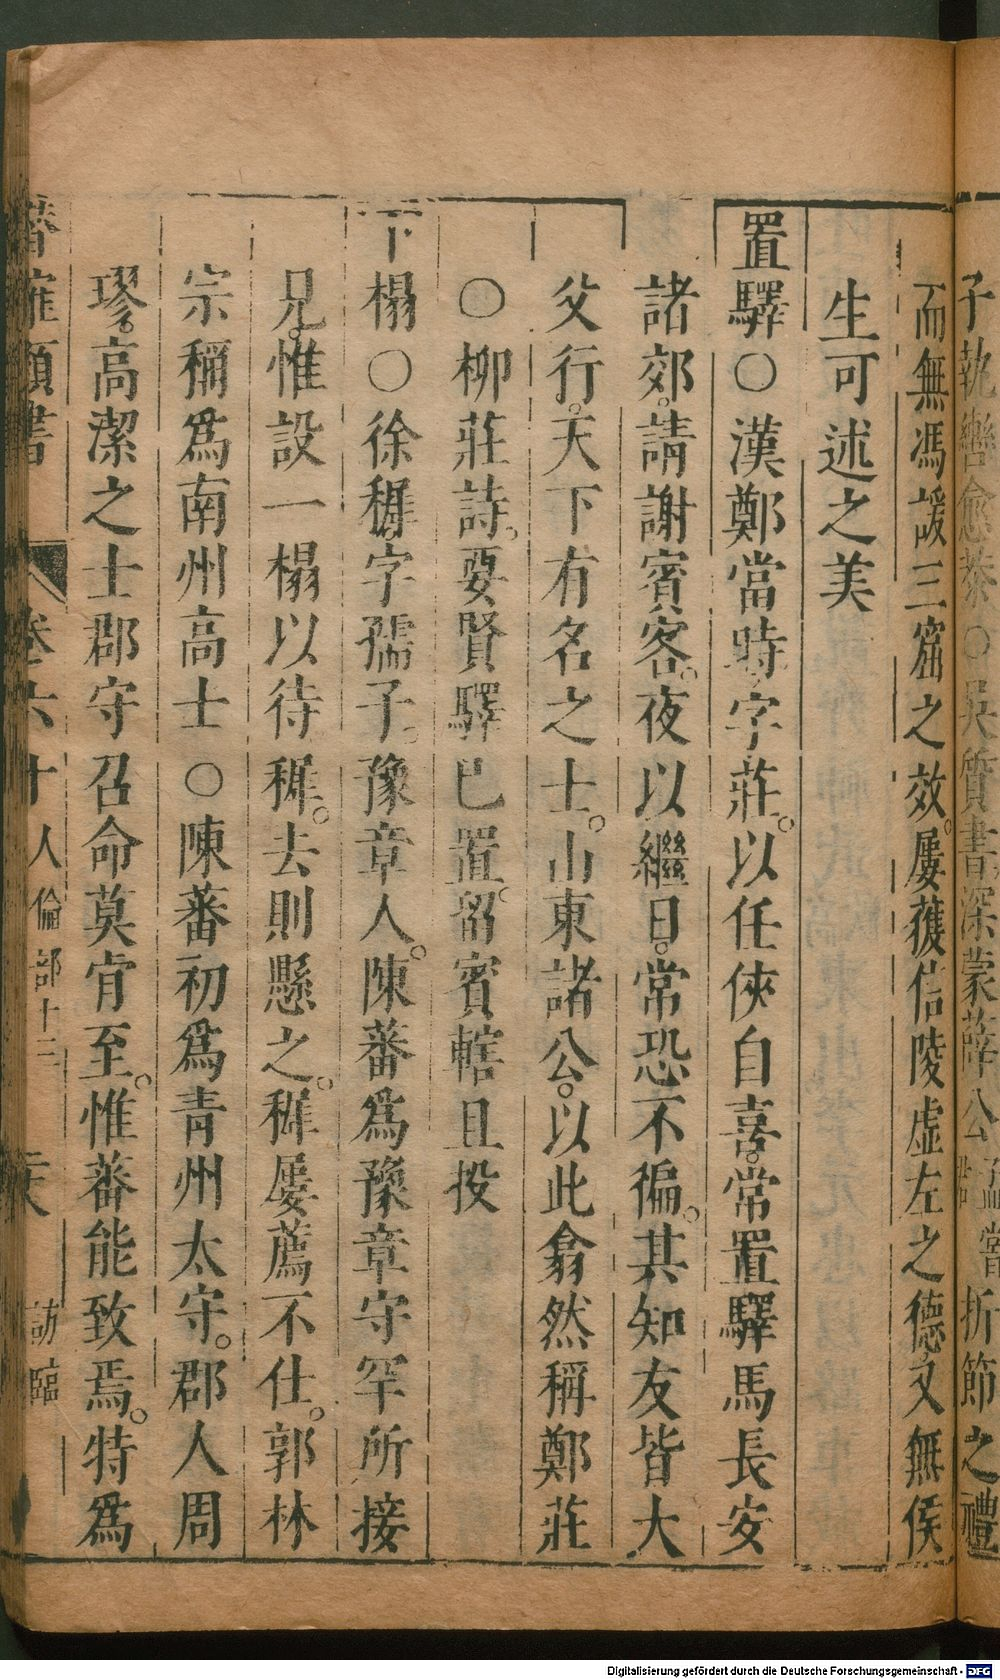 子執轡愈恭○吳質書深蒙薛公孟嘗折節之禮
而無馮諼三窟之效屢獲信陵虛左之德又無侯
生可述之美
置驛○漢鄭當時字莊以任俠自喜常置驛馬長安
諸郊請謝賓客夜以繼日常恐不徧其知友皆大
父行天下有名之士山東諸公以此翕然稱鄭莊
○柳莊詩要賢驛已置留賓轄且投
下榻○徐穉字孺子豫章人陳蕃爲豫章守罕所接
見惟設一榻以待穉去則懸之穉屢薦不仕郭林
宗稱爲南州高士○陳蕃初爲青州太守郡人周
璆高潔之士郡守召命莫肯至惟蕃能致焉特爲
類書 卷六十 人倫部十三 訪臨
Digitalisierung gefördert durch die Deutsche Forschungsgemeinschaft - DFG